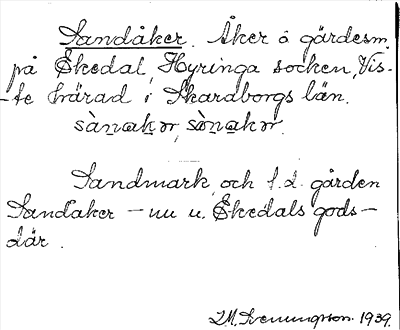 Sandåker. Åker å gärdesm.
på Ekedal, Hyringa socken, Vis-
-te härad i Skaraborgs län.
sànakər, sònakər.
Sandmark och f.d. gården
Sandåker – nu u. Ekedals gods –
där.
I.M. Svenungson. 1939.